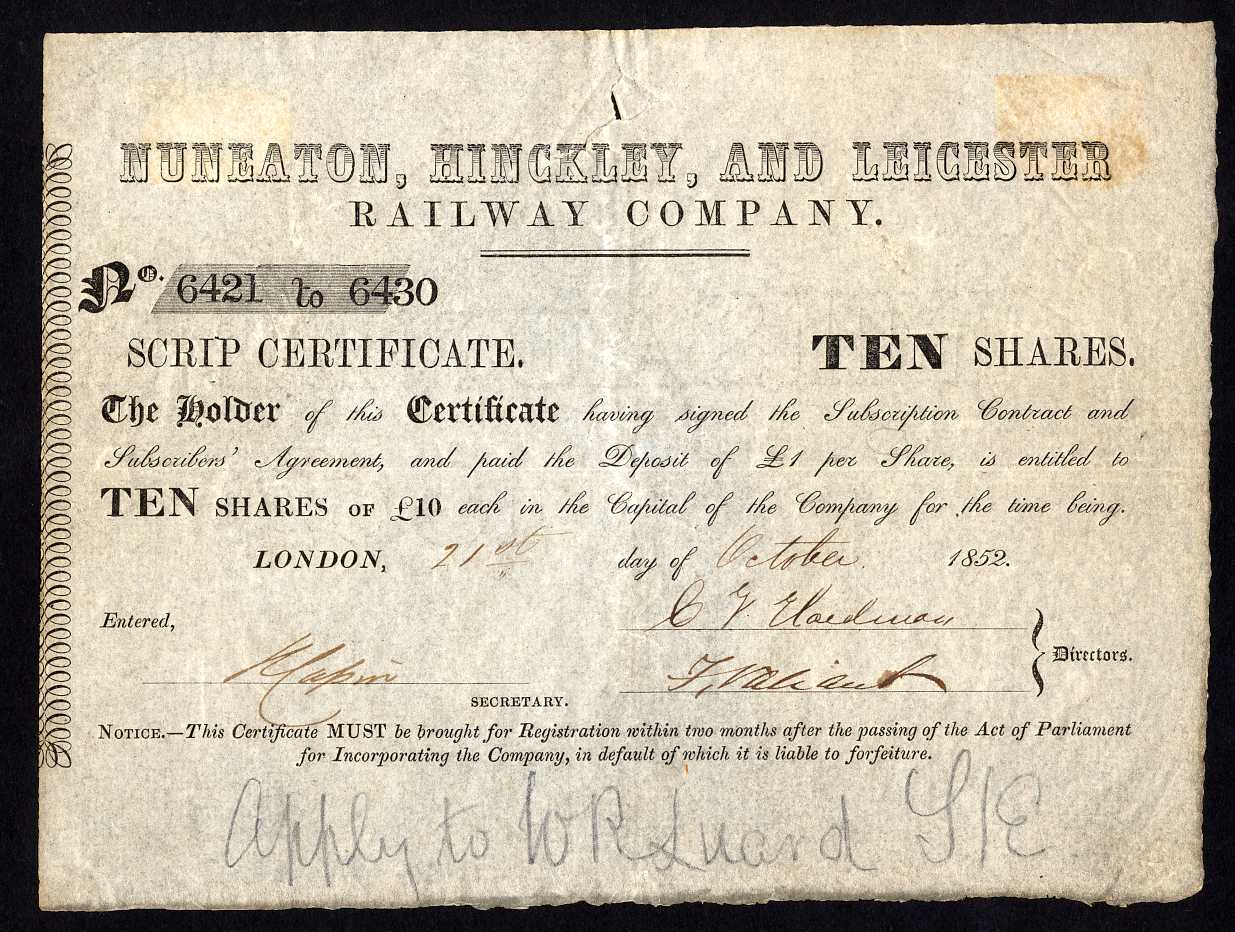 NUNEATON, HINCKLEY, AND LEICESTER
RAILWAY COMPANY.
No. 6421 to 6430
SCRIP CERTIFICATE. TEN SHARES.
The Holder of this Certificate having signed the Subscription Contract and
Subscribers' Agreement, and paid the Deposit of £1 per Share, is entitled to
TEN SHARES OF £10 each in the Capital of the Company for the time being.
LONDON, 21st day of October 1852.
Entered,
C
Directors.
SECRETARY.
NOTICE.—This Certificate MUST be brought for Registration within two months after the passing of the Act of Parliament
for Incorporating the Company, in default of which it is liable to forfeiture.
Apply to W R Luard S/E